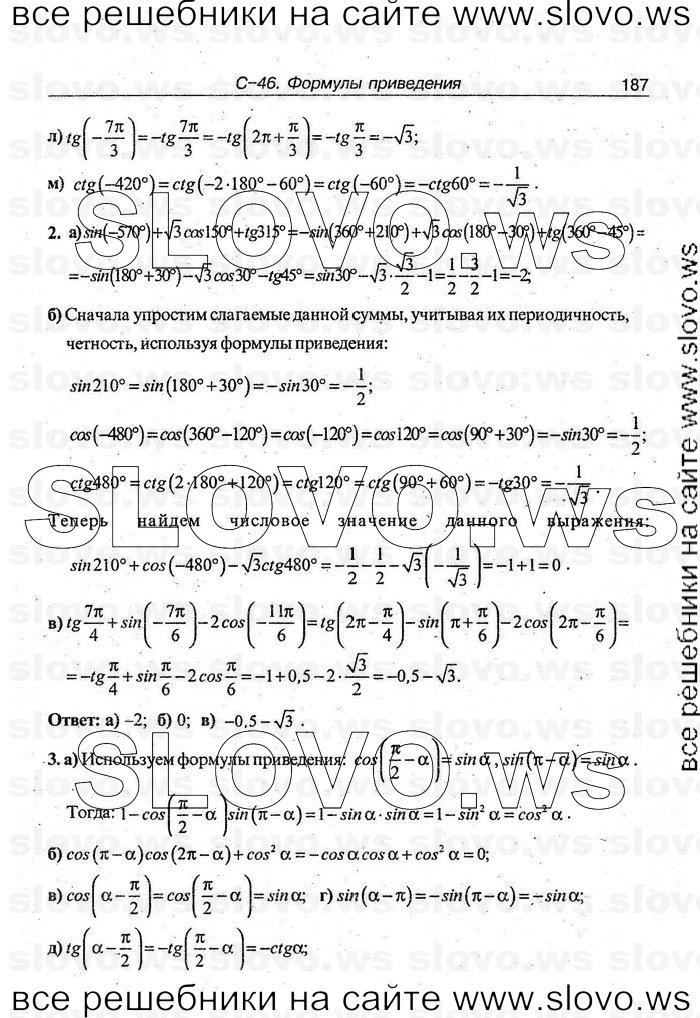 все решебники на сайте www.slovo.ws
С–46. Формулы приведения 187
л) tg(−7π/3) = −tg 7π/3 = −tg(2π + π/3) = −tg π/3 = −√3;
м) ctg(−420°) = ctg(−2·180° − 60°) = ctg(−60°) = −ctg60° = −1/√3 .
2. а) sin(−570°) + √3 cos150° + tg315° = −sin(360° + 210°) + √3 cos(180° − 30°) + tg(360° − 45°) =
= −sin(180° + 30°) − √3 cos30° − tg45° = sin30° − √3 · √3/2 − 1 = 1/2 − 3/2 − 1 = −2;
б) Сначала упростим слагаемые данной суммы, учитывая их периодичность,
четность, используя формулы приведения:
sin210° = sin(180° + 30°) = −sin30° = −1/2;
cos(−480°) = cos(360° − 120°) = cos(−120°) = cos120° = cos(90° + 30°) = −sin30° = −1/2;
ctg480° = ctg(2·180° + 120°) = ctg120° = ctg(90° + 60°) = −tg30° = −1/√3 .
Теперь найдем числовое значение данного выражения:
sin210° + cos(−480°) − √3ctg480° = −1/2 − 1/2 − √3(−1/√3) = −1 + 1 = 0 .
в) tg 7π/4 + sin(−7π/6) − 2cos(−11π/6) = tg(2π − π/4) − sin(π + π/6) − 2cos(2π − π/6) =
= −tg π/4 + sin π/6 − 2cos π/6 = −1 + 0,5 − 2 · √3/2 = −0,5 − √3.
Ответ: а) −2; б) 0; в) −0,5 − √3 .
3. а) Используем формулы приведения: cos(π/2 − α) = sin α , sin(π − α) = sin α .
Тогда: 1 − cos(π/2 − α)sin(π − α) = 1 − sin α · sin α = 1 − sin² α = cos² α .
б) cos(π − α)cos(2π − α) + cos² α = −cos α cos α + cos² α = 0;
в) cos(α − π/2) = cos(π/2 − α) = sin α; г) sin(α − π) = −sin(π − α) = −sin α;
д) tg(α − π/2) = −tg(π/2 − α) = −ctgα;
все решебники на сайте www.slovo.ws
все решебники на сайте www.slovo.ws
SLOVO.ws
SLOVO.ws
SLOVO.ws